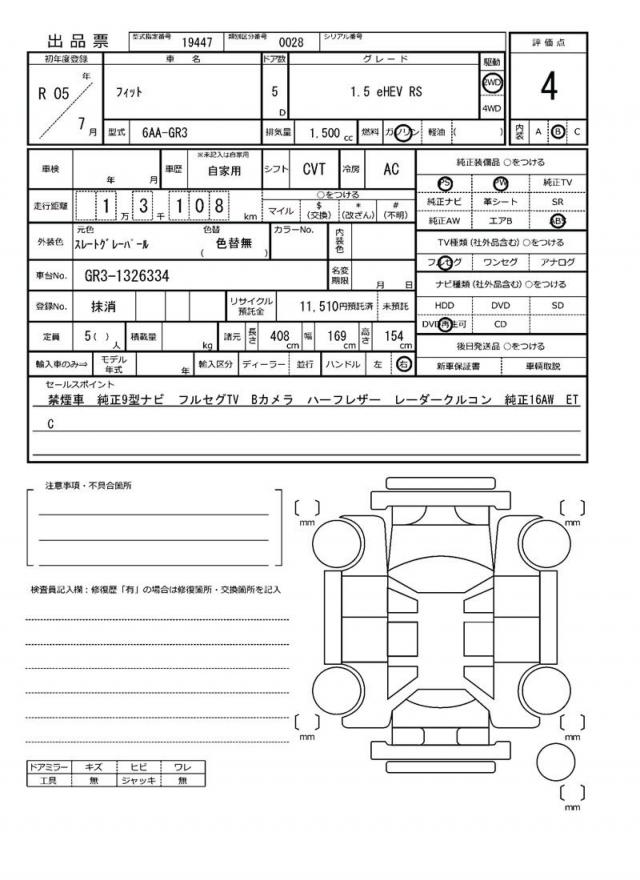 出品票 型式指定番号 19447 類別区分番号 0028 シリアル番号
評価点
初年度登録 車名 ドア数 グレード 駆動
R 05 年 フィット 5 D 1.5 eHEV RS 2WD 4
7 月 4WD
型式 6AA-GR3 排気量 1.500 cc 燃料 ガソリン 軽油 ( ) 内装 A B C
車検 年 月 車歴 ※未記入は自家用 自家用 シフト CVT 冷房 AC 純正装備品 ○をつける
PS PW 純正TV
走行距離 1 万 3 千 1 0 8 km ○をつける
マイル $ (交換) * (改ざん) # (不明)
純正ナビ 革シート SR
純正AW エアB ABS
外装色 元色 スレートグレーパール 色替 ( 色替無 ) カラーNo. 内装色
TV種類(社外品含む) ○をつける
フルセグ ワンセグ アナログ
車台No. GR3-1326334 名変期限 月 日
ナビ種類(社外品含む) ○をつける
登録No. 抹消 リサイクル預託金 11,510円預託済 未預託
HDD DVD SD
DVD再生可 CD
定員 5( ) 人 積載量 kg 諸元 長さ 408 cm 幅 169 cm 高さ 154 cm
後日発送品 ○をつける
輸入車のみ⇒ モデル年式 年 輸入区分 ディーラー 並行 ハンドル 左 右 新車保証書 車輌取説
セールスポイント
禁煙車 純正9型ナビ フルセグTV Bカメラ ハーフレザー レーダークルコン 純正16AW ET
C
注意事項・不具合箇所
mm
mm
検査員記入欄:修復歴「有」の場合は修復箇所・交換箇所を記入
mm
mm
ドアミラー キズ ヒビ ワレ
工具 無 ジャッキ 無
mm